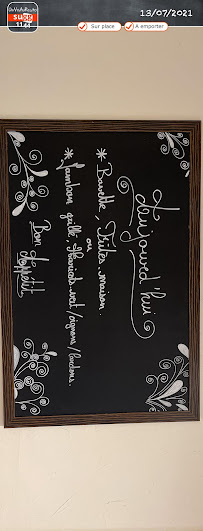 13/07/2021
Sur place
A emporter
Aujourd'hui
* Bavette, Frites maison.
ou
* Jambon grillé, Haricots-vert/oignons/lardons.
Bon Appétit